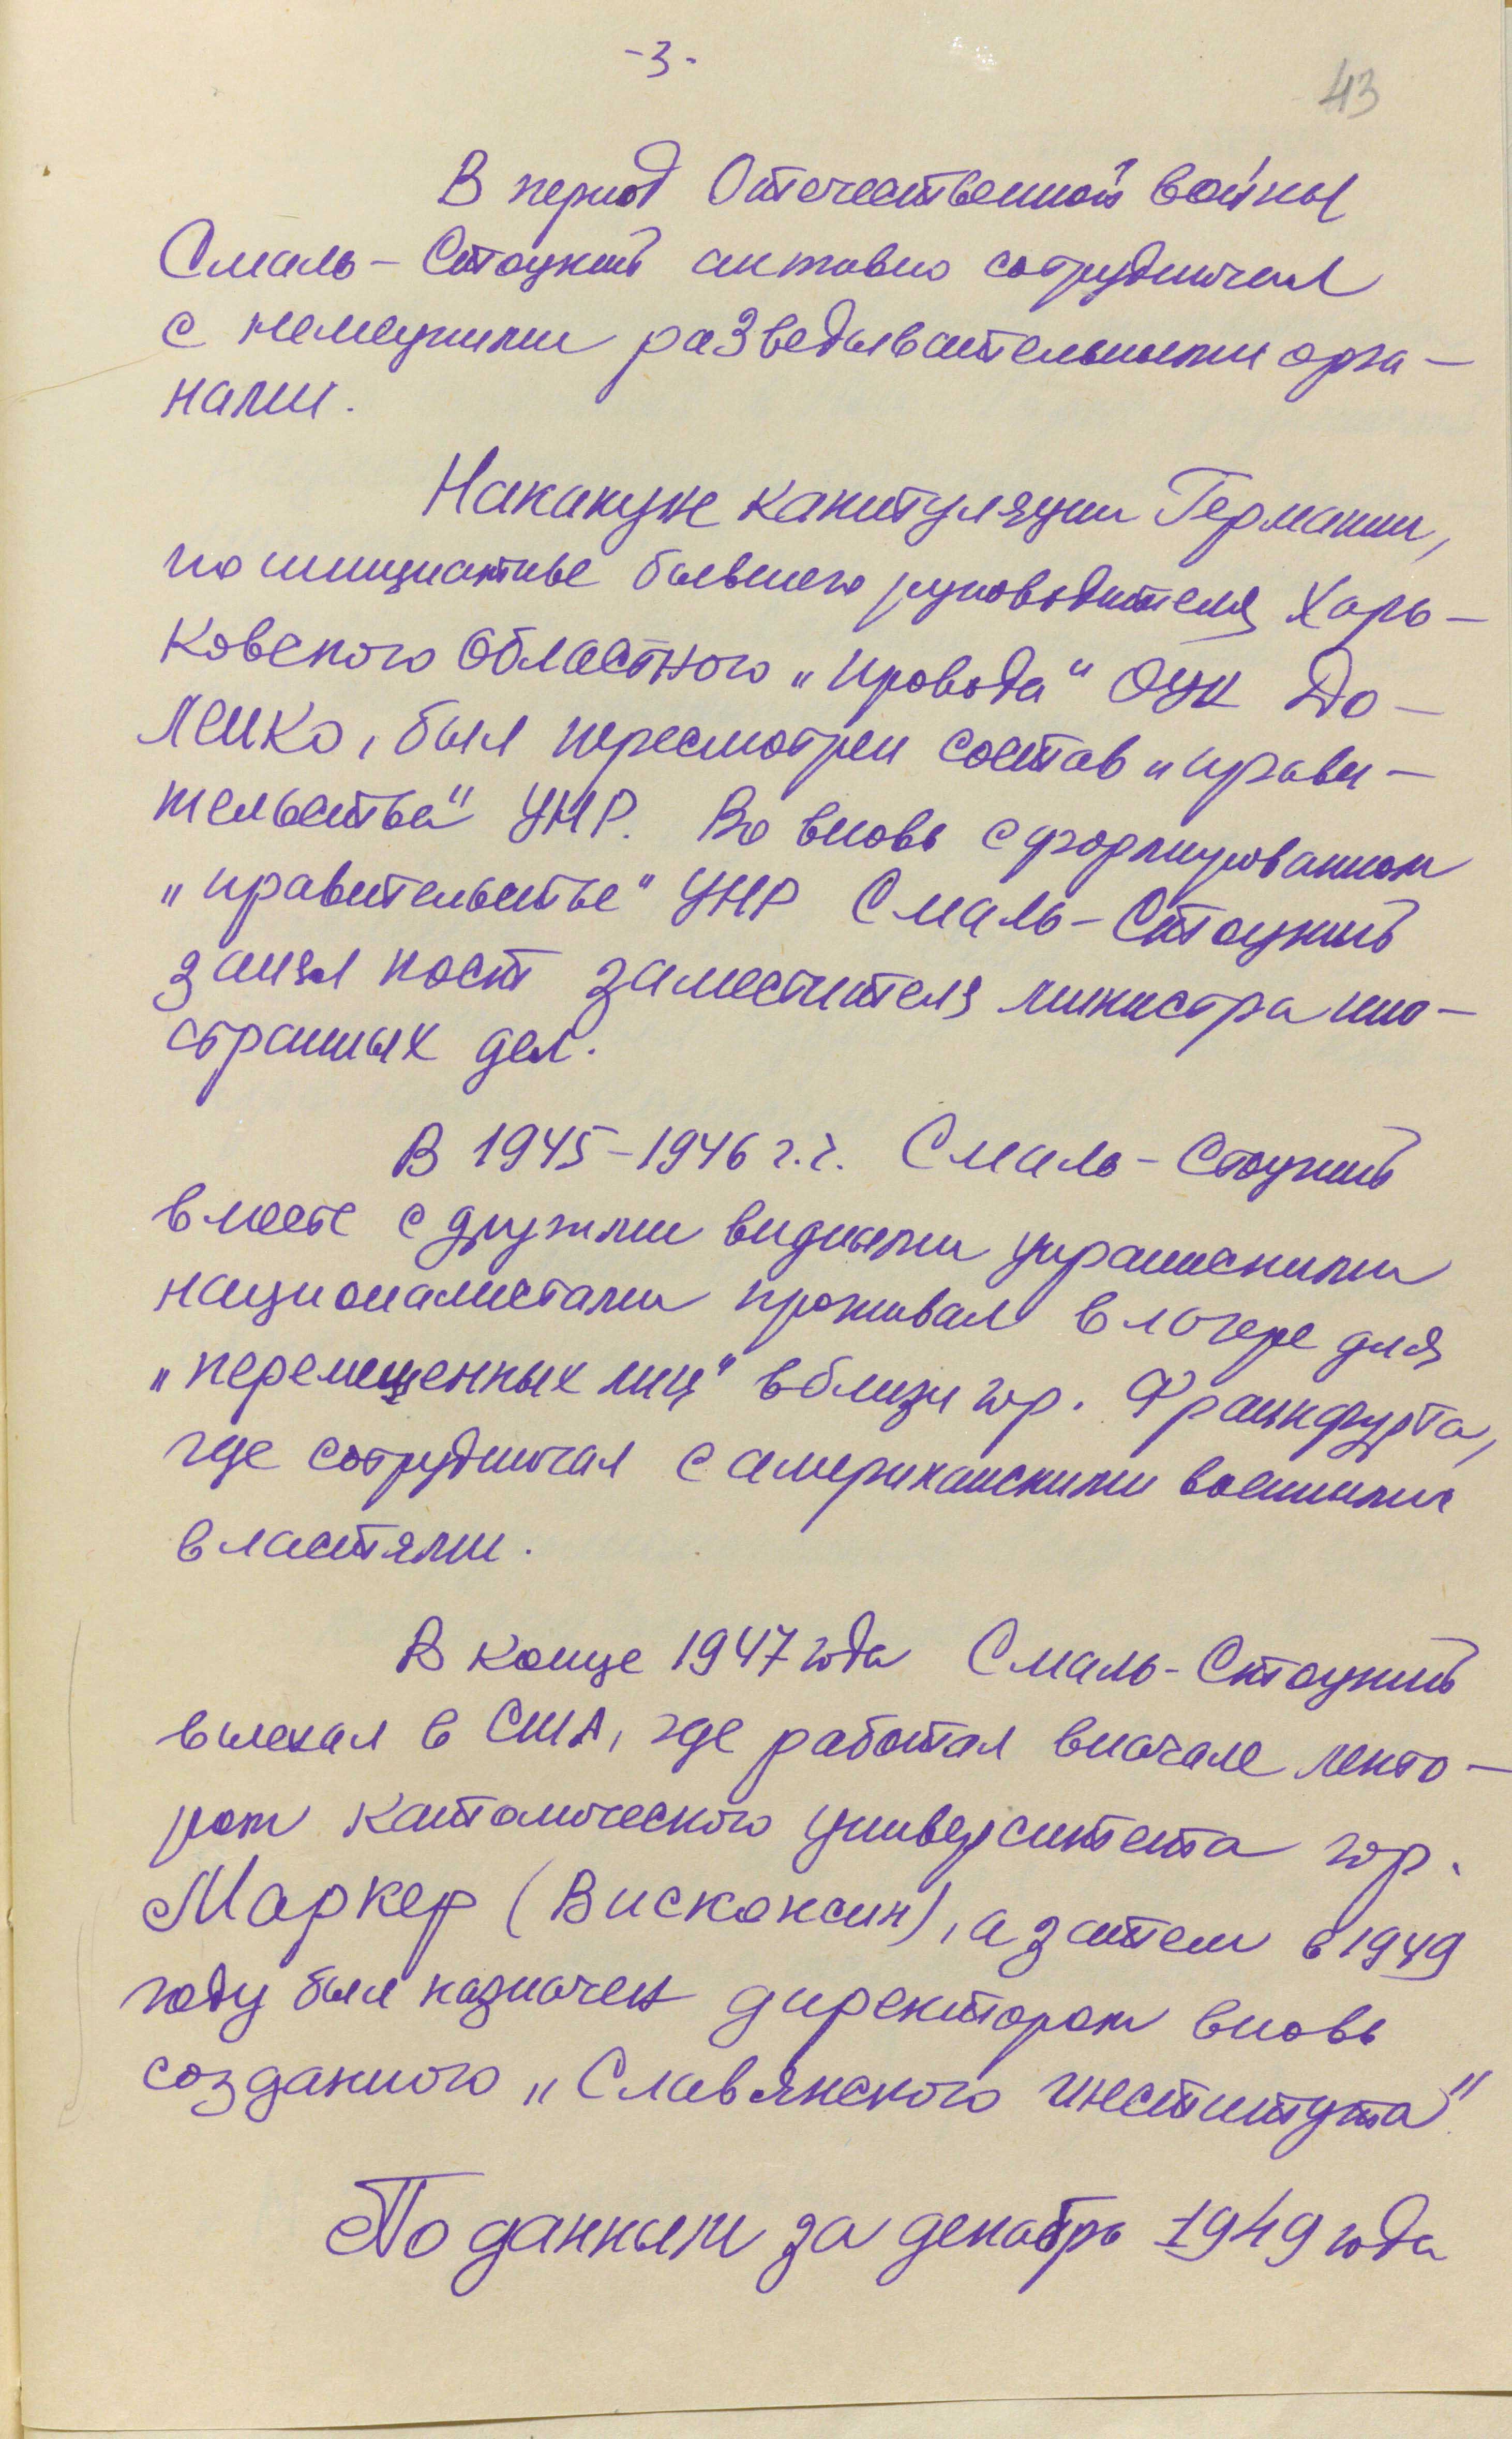 -3-
43
В период Отечественной войны
Смаль-Стоцкий активно сотрудничал
с немецкими разведывательными орга-
нами.
Накануне капитуляции Германии,
по инициативе бывшего руководителя Харь-
ковского областного „провода“ ОУН До-
ленко, был пересмотрен состав „прави-
тельства“ УНР. Во вновь сформированном
„правительстве“ УНР Смаль-Стоцкий
занял пост заместителя министра ино-
странных дел.
В 1945-1946 г.г. Смаль-Стоцкий
вместе с другими видными украинскими
националистами проживал в лагере для
„перемещенных лиц“ вблизи гор. Франкфурта,
где сотрудничал с американскими военными
властями.
В конце 1947 года Смаль-Стоцкий
выехал в США, где работал вначале лекто-
ром католического университета гор.
Маркер (Висконсин), а затем в 1949
году был назначен директором вновь
созданного „Славянского института“.
По данным за декабрь 1949 года